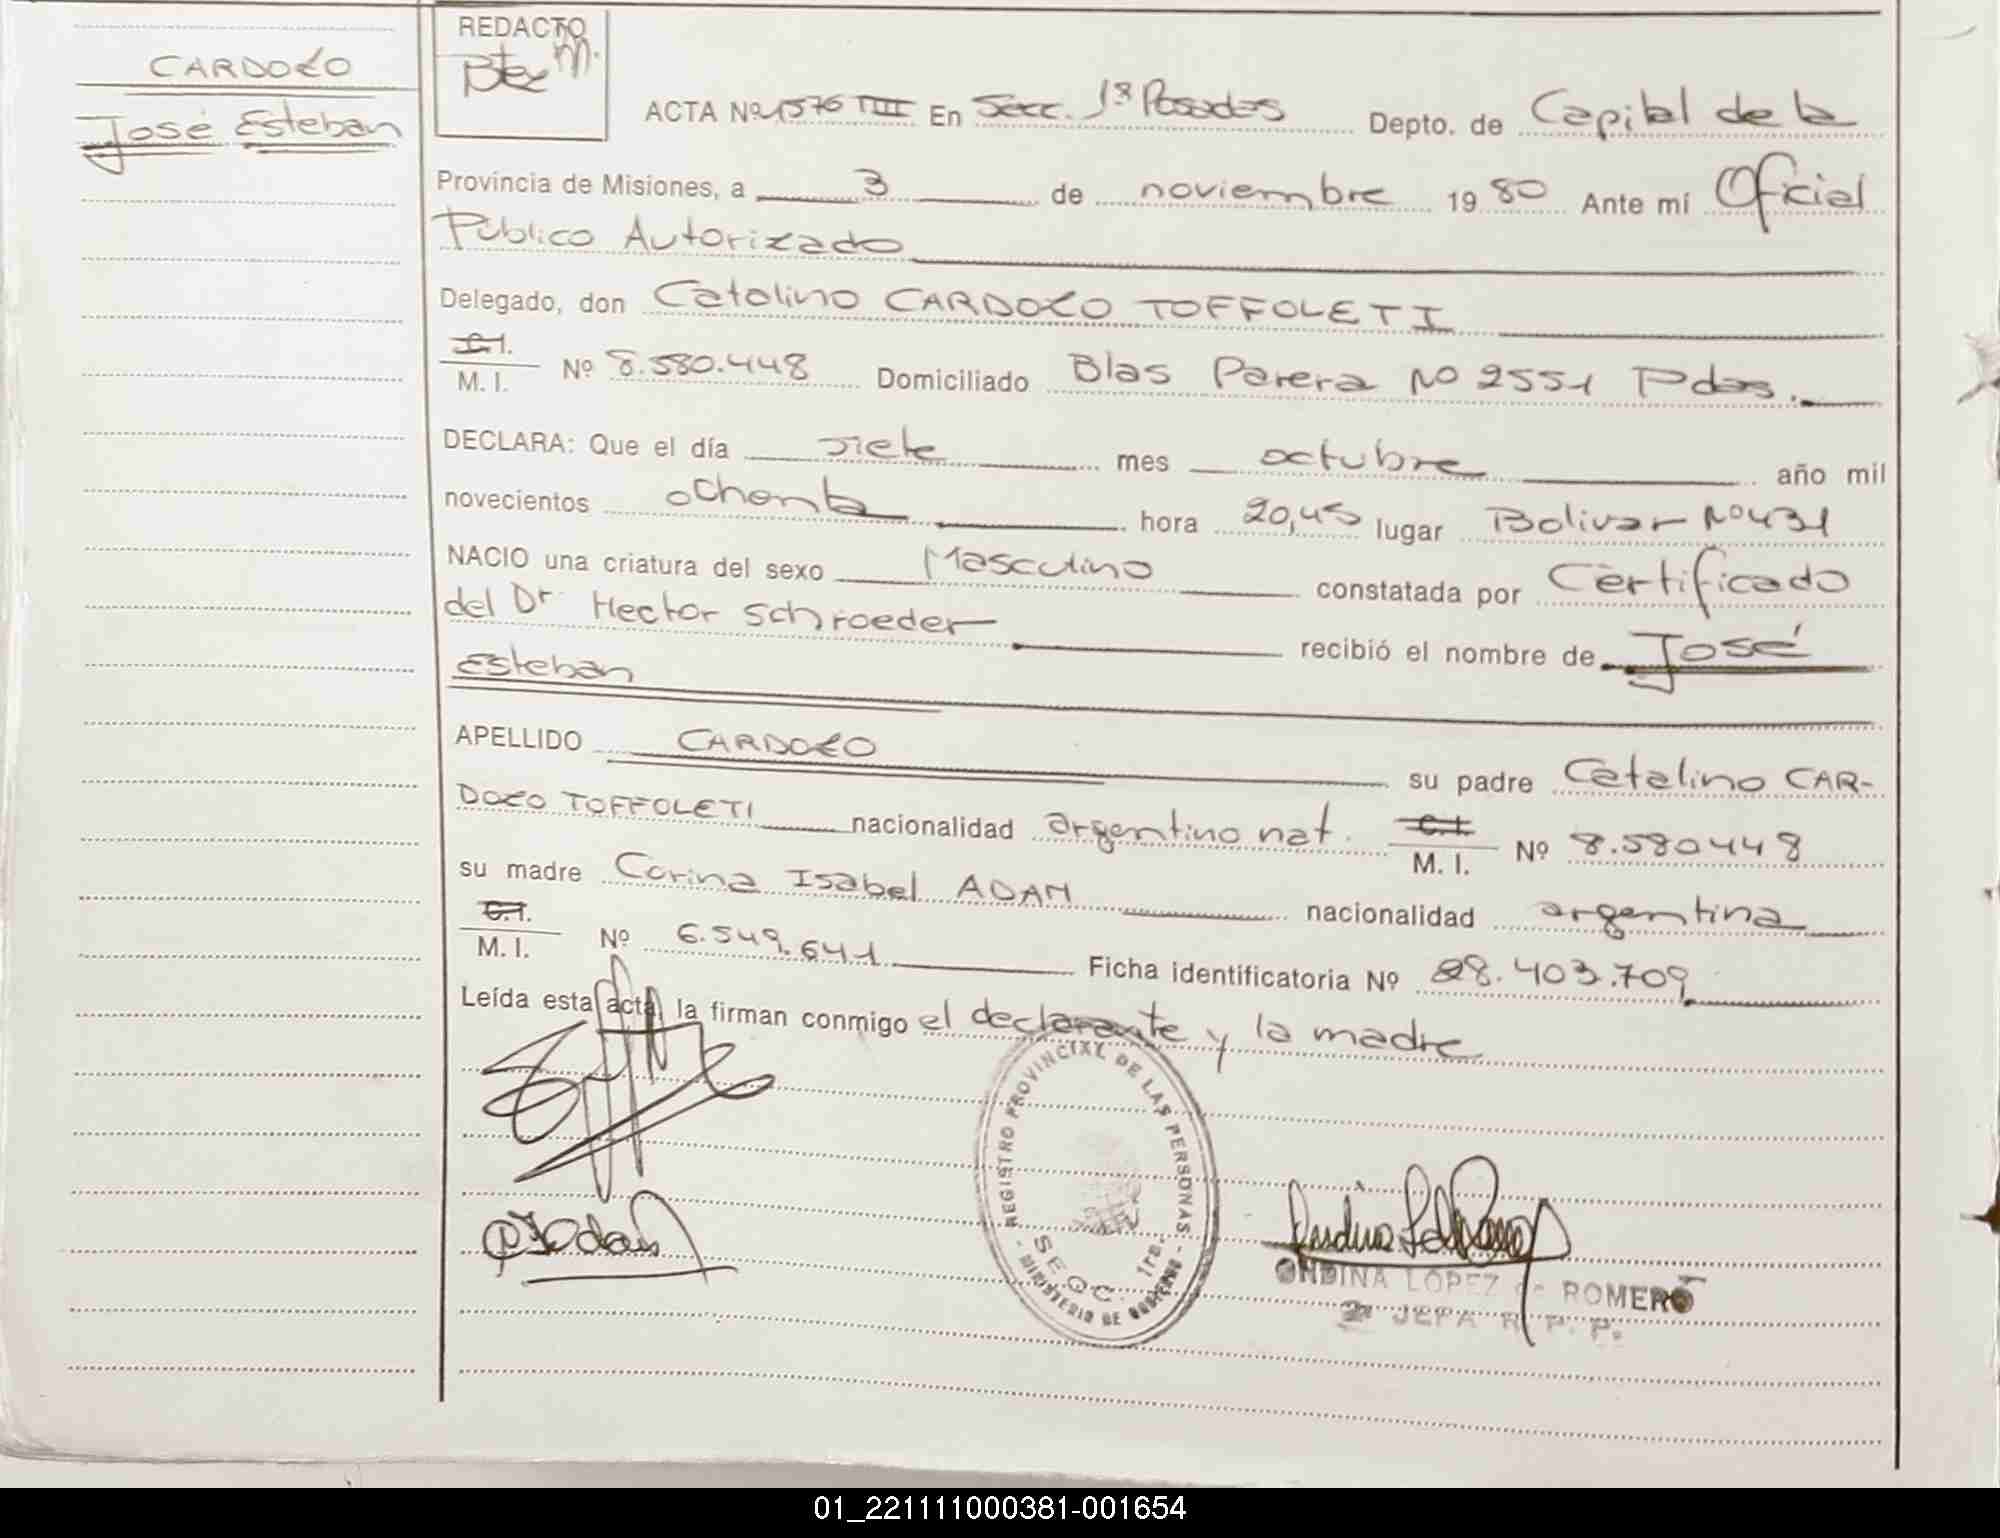 CARDOZO
José Esteban
REDACTO
Btez M.
ACTA Nº 1576 TIII En Secc. 1ª Posadas Depto. de Capital de la
Provincia de Misiones, a 3 de noviembre 1980 Ante mí Oficial
Público Autorizado
Delegado, don Catalino CARDOZO TOFFOLETI
C.I.
M. I. Nº 8.580.448 Domiciliado Blas Parera Nº 2551 Pdas.
DECLARA: Que el día siete mes octubre año mil
novecientos ochenta hora 20,45 lugar Bolivar Nº 431
NACIO una criatura del sexo Masculino constatada por Certificado
del Dr Hector Schroeder recibió el nombre de José
Esteban
APELLIDO CARDOZO su padre Catalino CAR-
DOZO TOFFOLETI nacionalidad argentino nat. C.I.
M. I. Nº 8.580448
su madre Corina Isabel ADAM nacionalidad argentina
C.I.
M. I. Nº 6.549.641 Ficha identificatoria Nº 28.403.709
Leída esta acta, la firman conmigo el declarante y la madre
REGISTRO PROVINCIAL DE LAS PERSONAS
SECC. 1ra.
- MINISTERIO DE GOBIERNO -
ONDINA LOPEZ de ROMERO
2ª JEFA R. P. P.
01_221111000381-001654